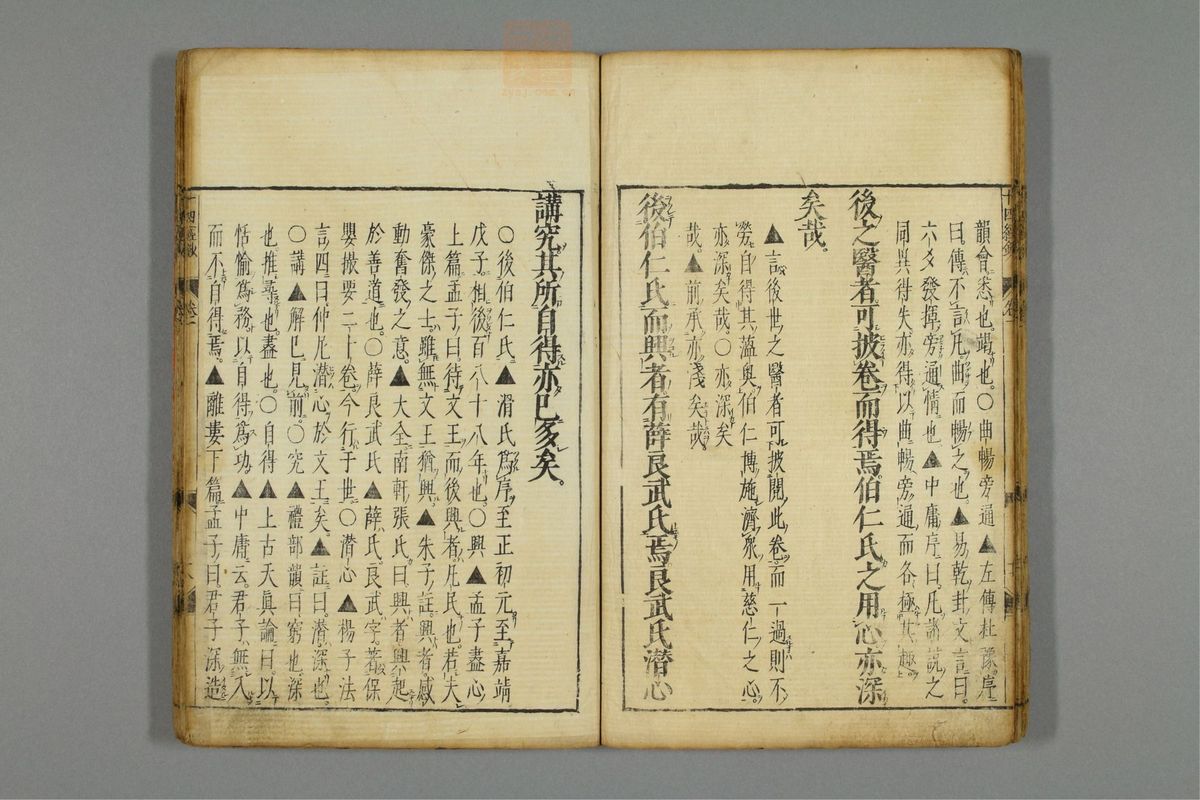 韻會悉也竭也○曲暢旁通▲左傳杜豫序
曰傳不言凡曲而暢之也▲易乾卦文言曰
六爻發揮旁通情也▲中庸序曰凡諸說之
同異得失亦得以曲暢旁通而各極其趣
後之醫者可披卷而得焉伯仁氏之用心亦深
矣哉
▲言後世之醫者可披閱此卷而一過則不
勞自得其蘊奧伯仁博施濟衆用慈仁之心
亦深矣哉○亦深矣
哉▲前承亦淺矣哉
後伯仁氏而興者有薛良武氏焉良武氏潜心
講究其所自得亦已多矣
○後伯仁氏▲滑氏爲序至正初元至嘉靖
戊子相後百八十八年也○興▲孟子盡心
上篇孟子曰待文王而後興者凡民也若夫
豪傑之士雖無文王猶興▲朱子註興者感
動奮發之意▲大全南軒張氏曰興者興起
於善道也○薛良武氏▲薛氏良武字著保
嬰撮要二十卷今行于世○潜心▲楊子法
言四曰仲尼潜心於文王矣▲註曰潜深也
○講▲解已見前○究▲禮部韻曰窮也深
也推尋也盡也○自得▲上古天眞論曰以
恬愉爲務以自得爲功▲中庸云君子無入
而不自得焉▲離婁下篇孟子曰君子深造
十四經
卷一
卷一